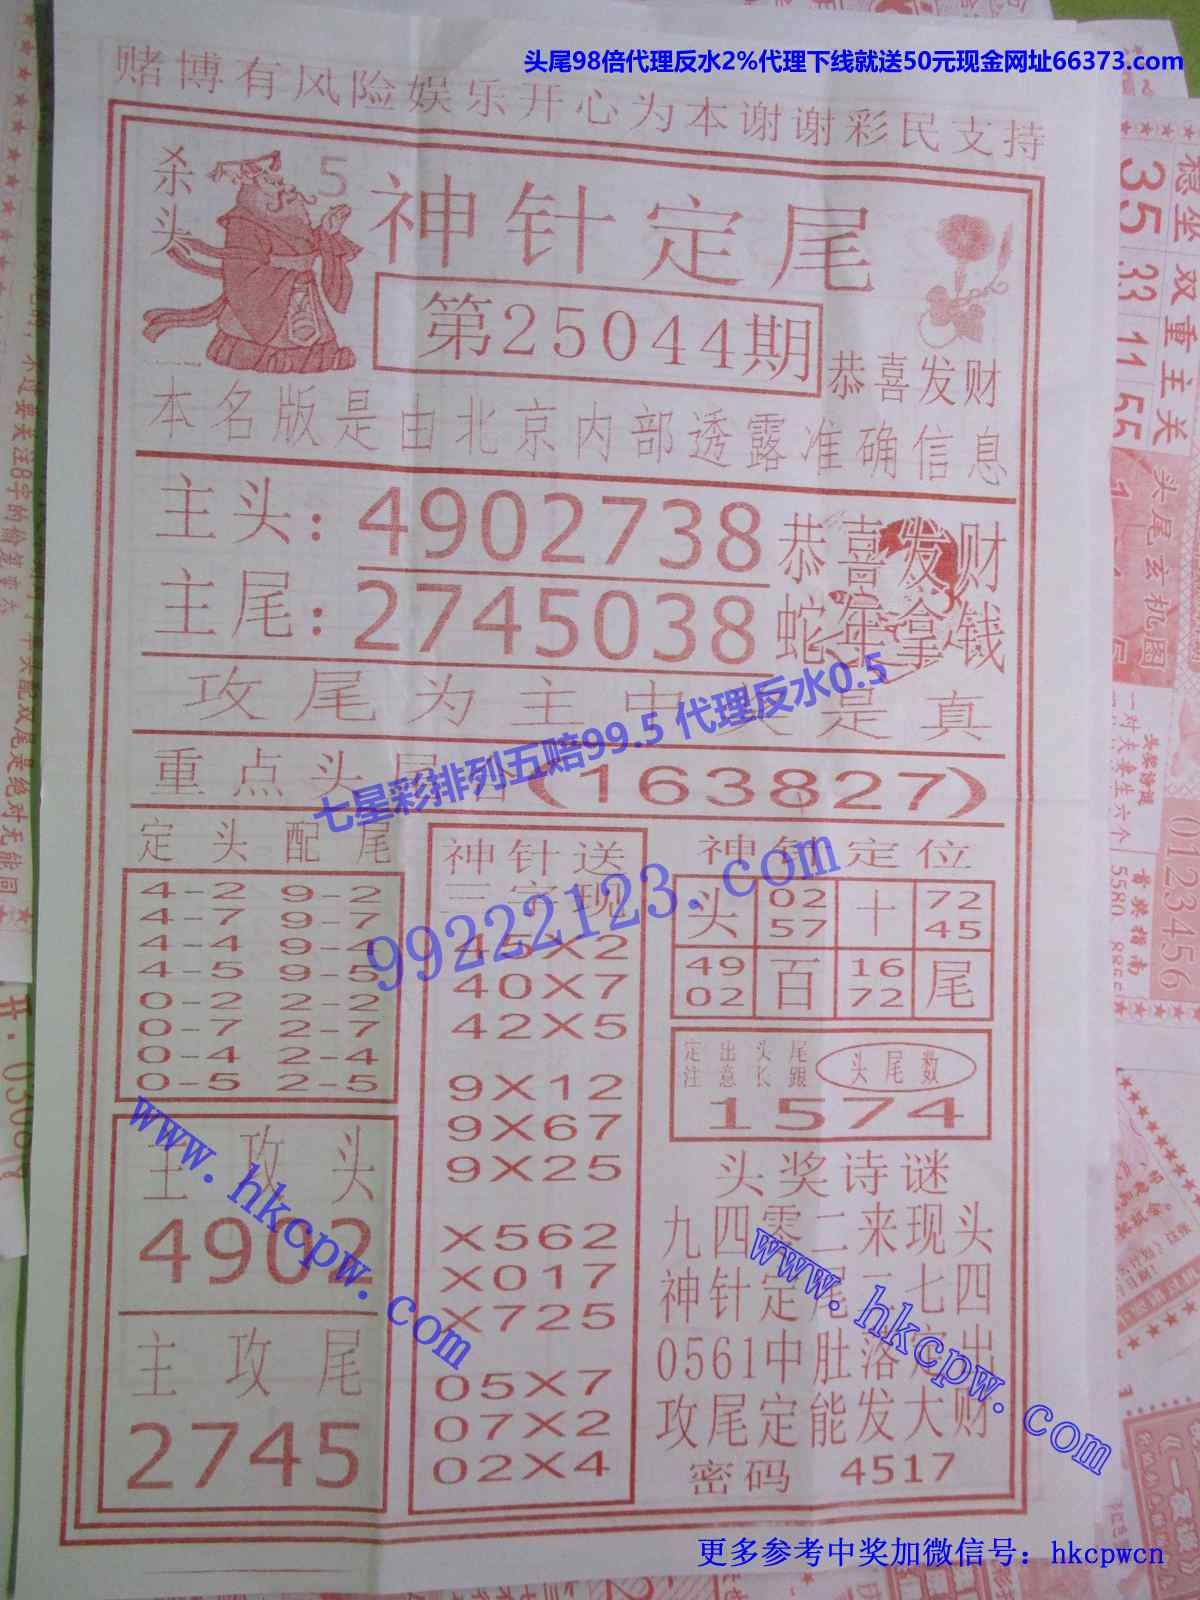 头尾98倍代理反水2%代理下线就送50元现金网址66373.com
赌博有风险娱乐开心为本谢谢彩民支持
杀头 5
神针定尾
第25044期
恭喜发财
本名版是由北京内部透露准确信息
主头：4902738 恭喜发财
主尾：2745038 蛇年拿钱
攻尾为主中奖是真
七星彩排列五赔99.5 代理反水0.5
重点头尾 (163827)
99222123.com
定头配尾
4-2 9-2
4-7 9-7
4-4 9-4
4-5 9-5
0-2 2-2
0-7 2-7
0-4 2-4
0-5 2-5
主攻头
4902
主攻尾
2745
神针送
三字现
45X2
40X7
42X5
9X12
9X67
9X25
X562
X017
X725
05X7
07X2
02X4
神针定位
头 02 57 十 72 45
49 02 百 16 72 尾
定出头尾
注意长跟
头尾数
1574
头奖诗谜
九四零二来现头
神针定尾二七四
0561中肚落定出
攻尾定能发大财
密码 4517
www.hkcpw.com
www.hkcpw.com
更多参考中奖加微信号：hkcpwcn
稳坐双重主关
35
33
11
55
头尾玄机图
0123456
5580